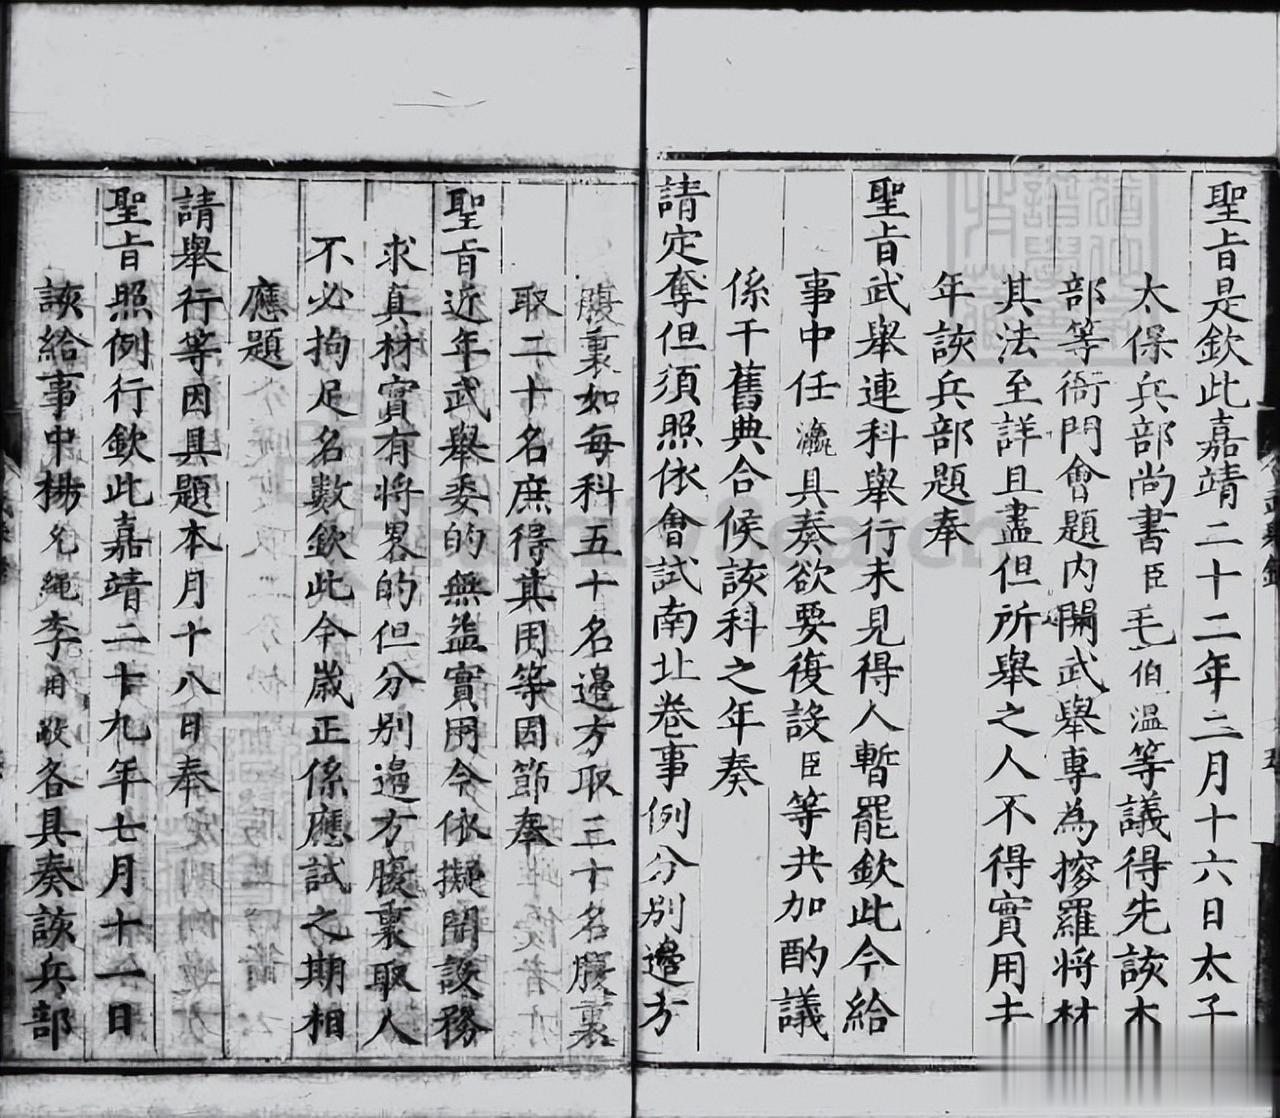 聖旨是欽此嘉靖二十二年二月十六日太子
太保兵部尚書臣毛伯溫等議得先該本
部等衙門會題內開武舉專為搜羅將材
其法至詳且盡但所舉之人不得實用去
年該兵部題奉
聖旨武舉連科舉行未見得人暫罷欽此今給
事中任瀛具奏欲要復設臣等共加酌議
係干舊典合候該科之年奏
請定奪但須照依會試南北卷事例分別邊方
腹裏如每科五十名邊方取三十名腹裏
取二十名庶得其用等因節奉
聖旨近年武舉委的無益實用今依擬開設務
求真材實有將畧的但分別邊方腹裏取人
不必拘足名數欽此今歲正係應試之期相
應題
請舉行等因具題本月十八日奉
聖旨照例行欽此嘉靖二十九年七月十一日
該給事中楊允繩李用敬各具奏該兵部